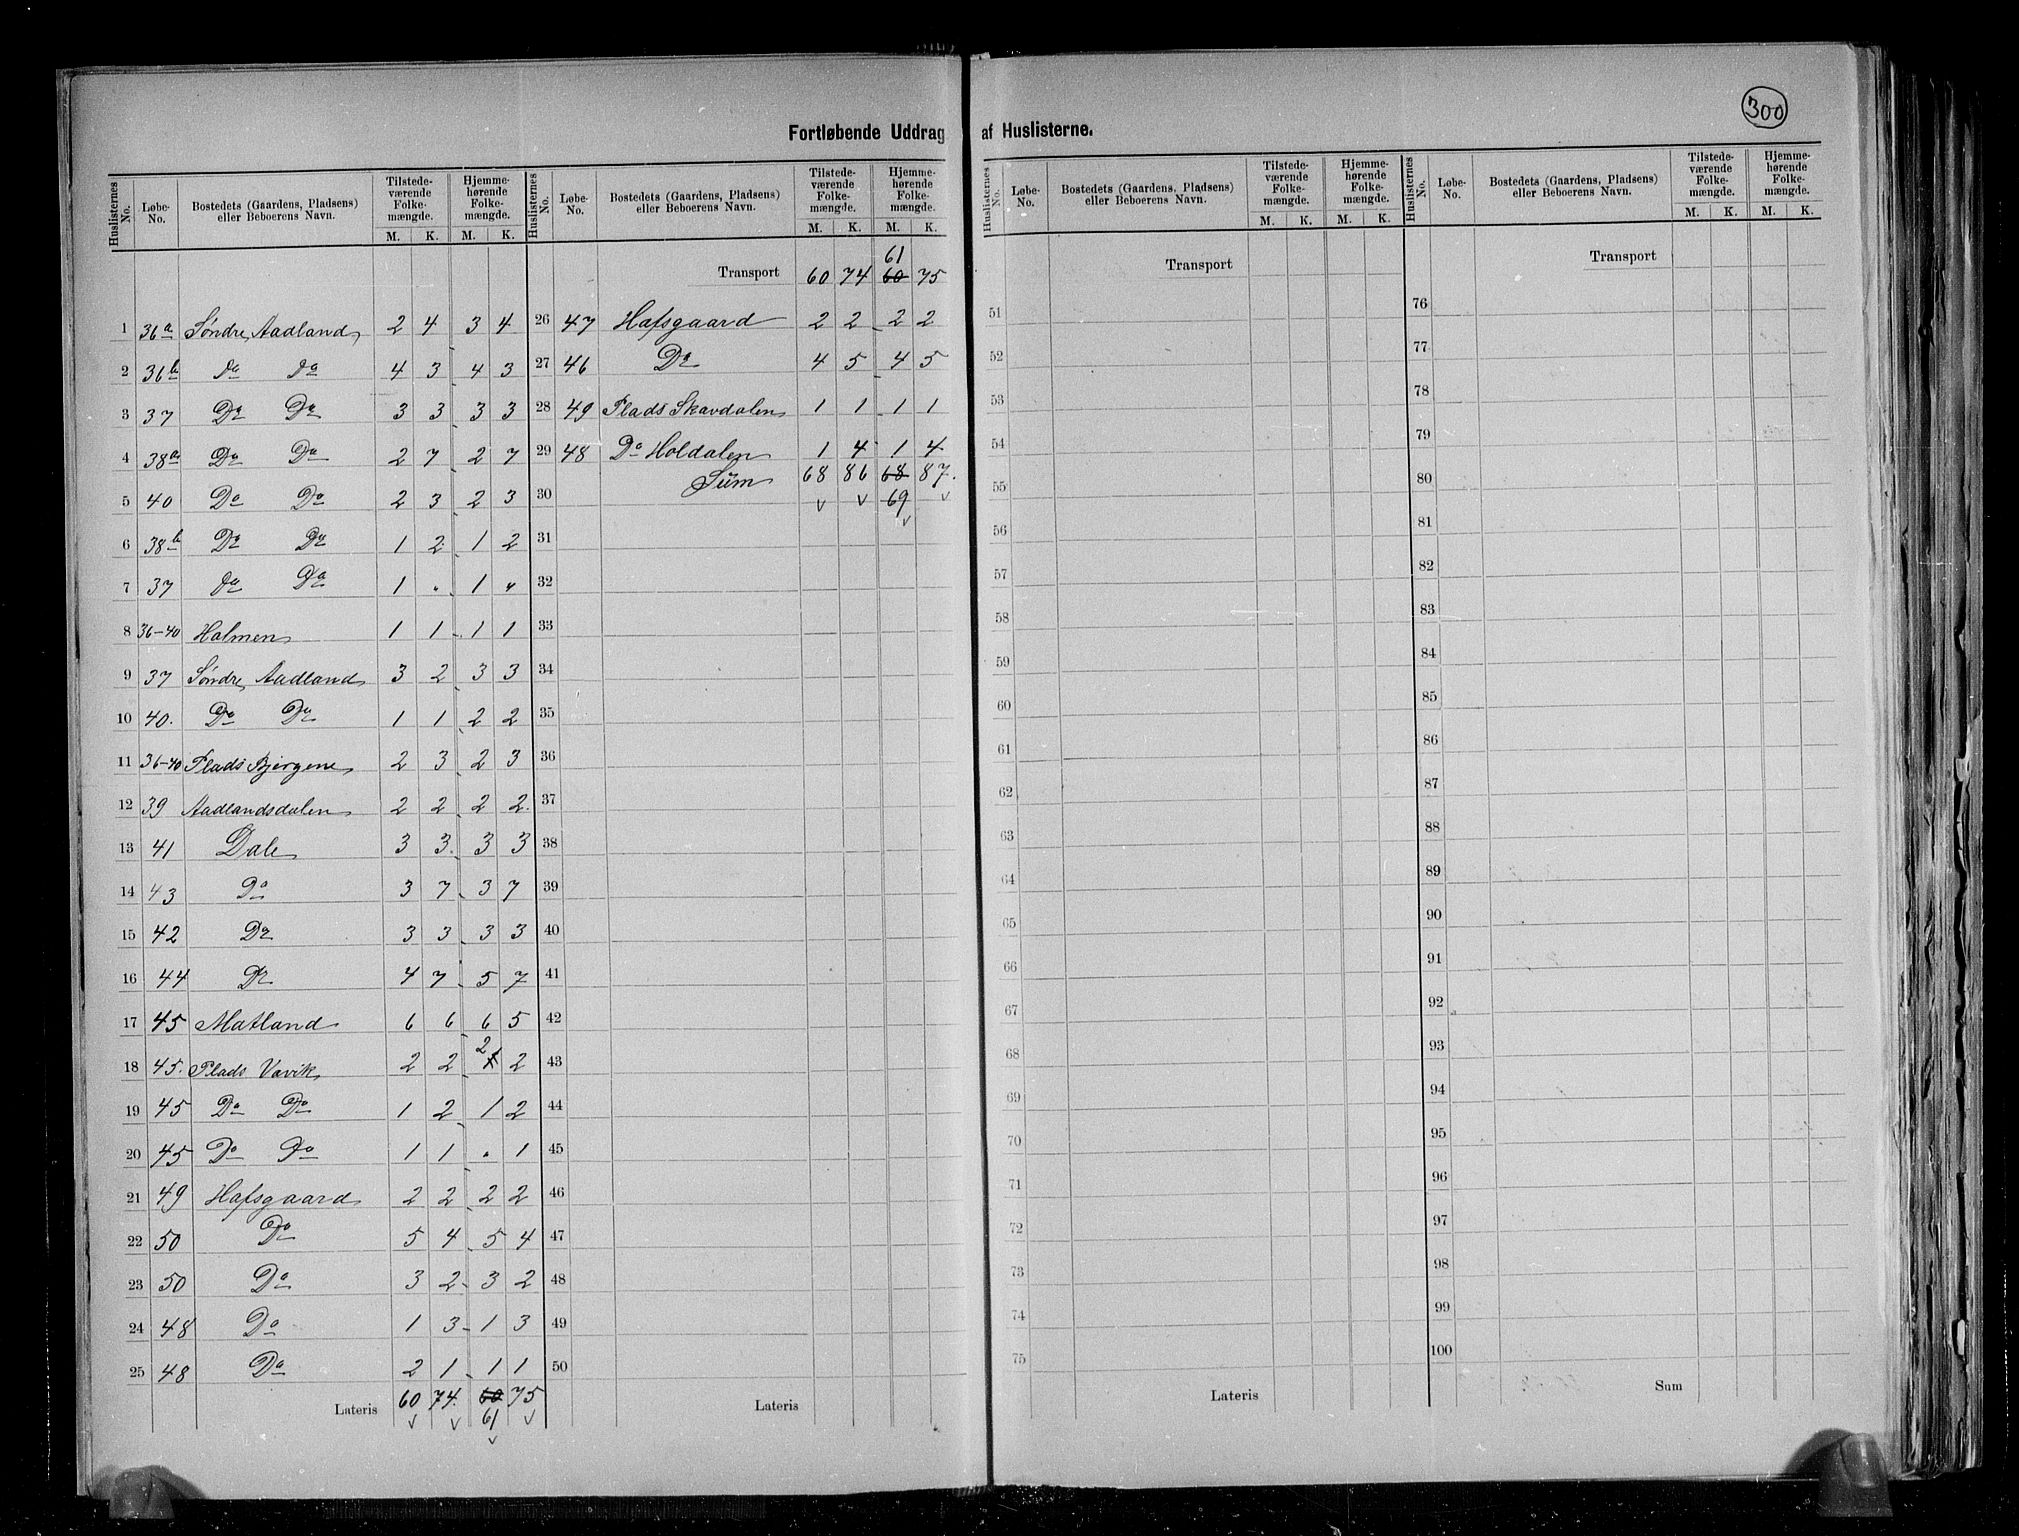 300
Fortløbende Uddrag af Huslisterne.
Huslisternes No. Løbe-No. Bostedets (Gaardens, Pladsens) eller Beboerens Navn. Tilstede-værende Folke-mængde. M. K. Hjemme-hørende Folke-mængde. M. K.
1 36a Søndre Aadland 2 4 3 4
2 36b do do 4 3 4 3
3 37 Do Do 3 3 3 3
4 38a Do Do 2 7 2 7
5 40 Do Do 2 3 2 3
6 38b Do Do 1 2 1 2
7 37 do Do 1 " 1 "
8 36-40 Holmen 1 1 1 1
9 37 Søndre Aadland 3 2 3 3
10 40. Do Do 1 1 2 2
11 36-40 Plads Bjørgene 2 3 2 3
12 39 Aadlandsdalen 2 2 2 2.
13 41 Dale 3 3 3 3
14 43 Do 3 7 3 7
15 42 Do 3 3 3 3
16 44 Do 4 7 5 7
17 45 Matland 6 6 6 5
18 45. Plads Vavik 2 2 2 2
19 45 Do Do 1 2 1 2
20 45 Do Do 1 1 " 1
21 49 Hafsgaard 2 2 2 2
22 50 Do 5 4 5 4
23 50 Do 3 2 3 2
24 48 Do 1 3 1 3
25 48 Do 2 1 1 1
Lateris 60 74. 60 75
61
Huslisternes No. Løbe-No. Bostedets (Gaardens, Pladsens) eller Beboerens Navn. Tilstede-værende Folke-mængde. M. K. Hjemme-hørende Folke-mængde. M. K.
61
Transport 60 74 60 75
26 47 Hafsgaard 2 2 2 2
27 46 Do 4 5 4 5
28 49 Plads Skavdalen 1 1 1 1
29 48 Do Holdalen 1 4 1 4
30 Sum 68 86 68 87.
69
31
32
33
34
35
36
37
38
39
40
41
42
43
44
45
46
47
48
49
50
Lateris
Huslisternes No. Løbe-No. Bostedets (Gaardens, Pladsens) eller Beboerens Navn. Tilstede-værende Folke-mængde. M. K. Hjemme-hørende Folke-mængde. M. K.
Transport
51
52
53
54
55
56
57
58
59
60
61
62
63
64
65
66
67
68
69
70
71
72
73
74
75
Lateris
Huslisternes No. Løbe-No. Bostedets (Gaardens, Pladsens) eller Beboerens Navn. Tilstede-værende Folke-mængde. M. K. Hjemme-hørende Folke-mængde. M. K.
Transport
76
77
78
79
80
81
82
83
84
85
86
87
88
89
90
91
92
93
94
95
96
97
98
99
100
Sum